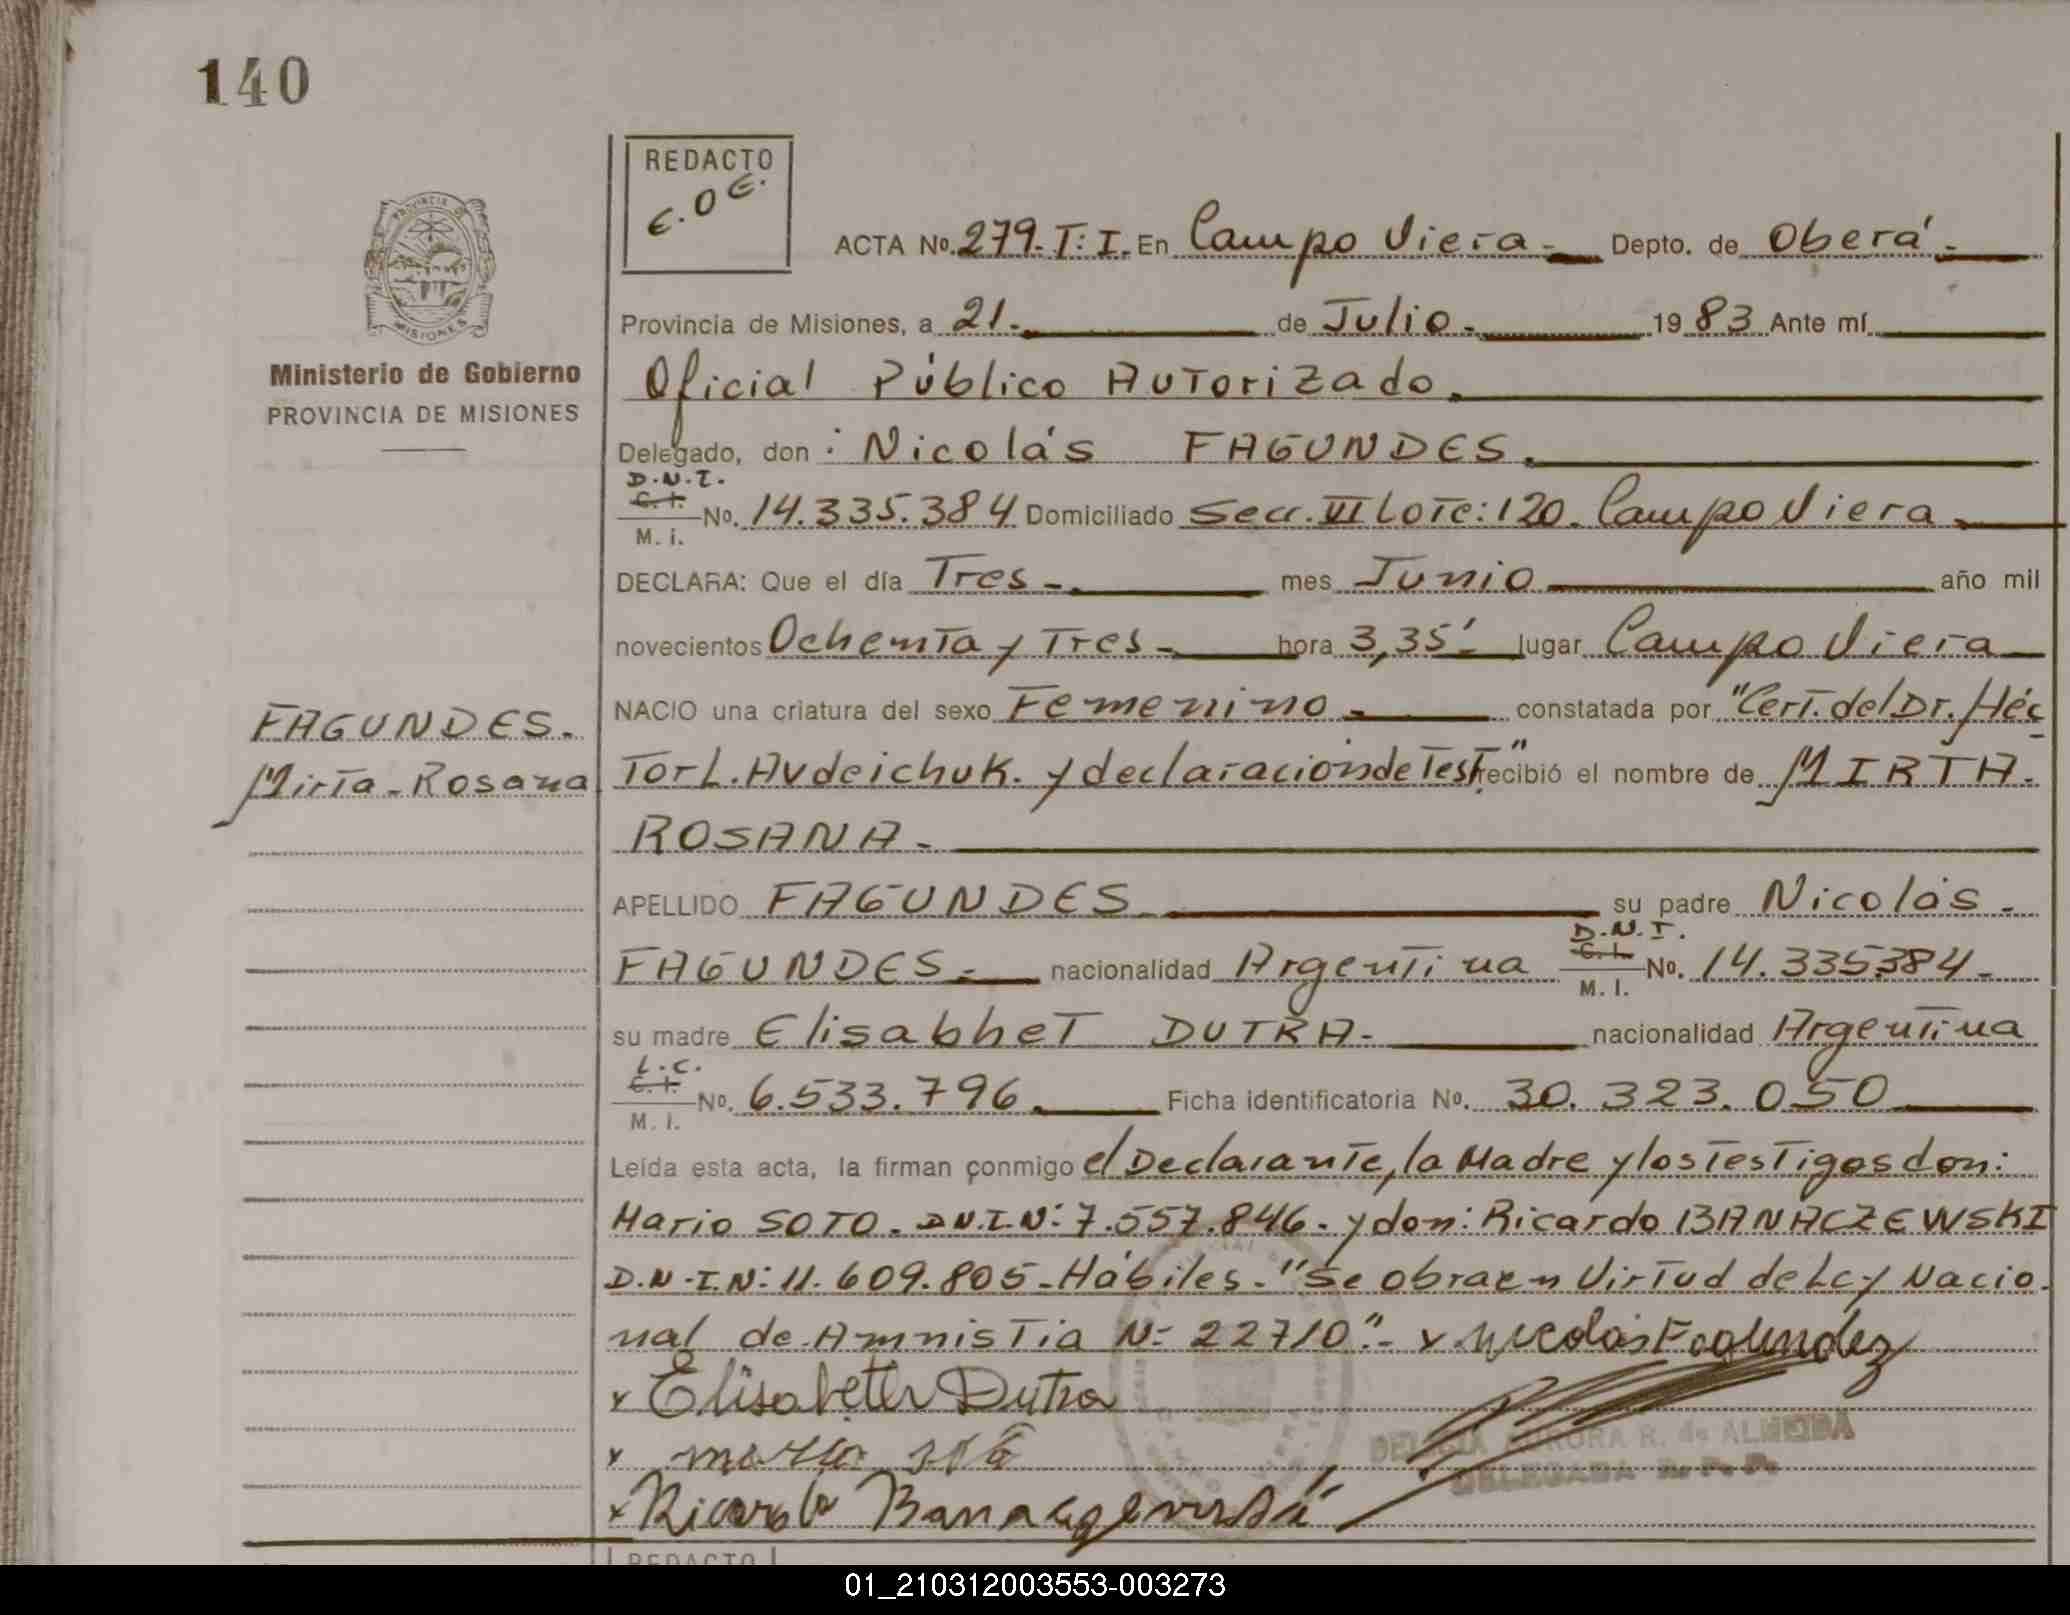 140
REDACTO
E.O.E.
ACTA No. 279. T: I. En Campo Viera - Depto. de Oberá -
PROVINCIA DE
MISIONES
Provincia de Misiones, a 21. de Julio. 1983 Ante mí
Ministerio de Gobierno
PROVINCIA DE MISIONES
Oficial Público Autorizado.
Delegado, don : Nicolás FAGUNDES.
D.N.I.
C.I.
M. i.
No. 14.335.384 Domiciliado Secc. VI Lote: 120. Campo Viera
DECLARA: Que el día Tres - mes Junio año mil
novecientos Ochenta y Tres - hora 3,35' - lugar Campo Viera
NACIO una criatura del sexo Femenino - constatada por "Cert. del Dr. Héc
FAGUNDES.
Mirta - Rosana
tor L. Avdeichuk. y declaración de Test." recibió el nombre de MIRTA -
ROSANA -
APELLIDO FAGUNDES su padre Nicolás -
D.N.I.
C.I.
M. I.
FAGUNDES - nacionalidad Argentina No. 14.335384 -
su madre Elisabhet DUTRA - nacionalidad Argentina
L.C.
C.I.
M. I.
No. 6.533.796. Ficha identificatoria No. 30.323.050
Leída esta acta, la firman conmigo el Declarante, la Madre y los Testigos don:
Mario SOTO. D.N.I.N: 7.557.846 - y don: Ricardo BANACZEWSKI
D.N.I.N: 11.609.805 - Hábiles - "Se obra en Virtud de Ley Nacio-
nal de Amnistia N- 22710" - x Nicolás Fagundez
x Elisabeth Dutra
DELICIA AURORA R. de ALMEIDA
x
DELEGADA R. P. P.
x Ricardo
REDACTO
01_210312003553-003273